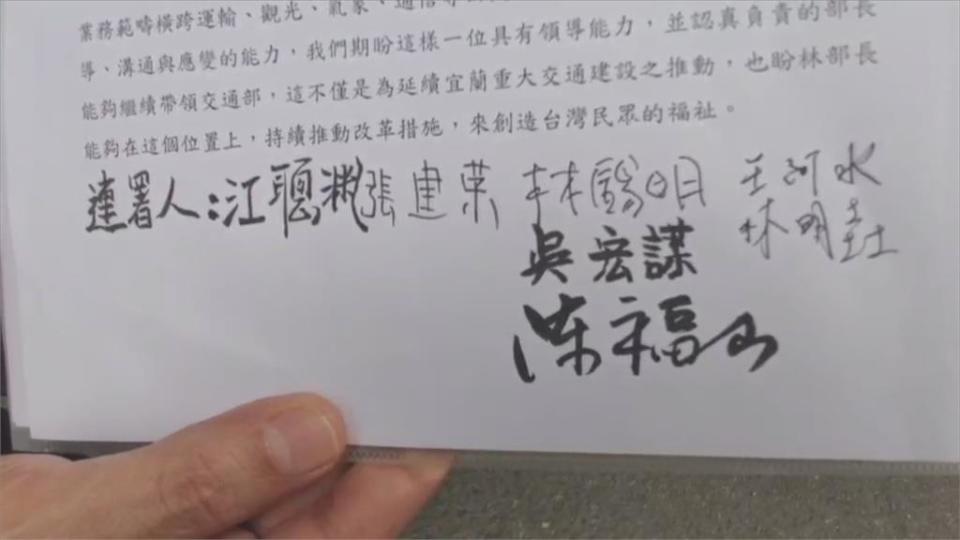 業務範疇橫跨運輸、觀光、氣象、通信等
導、溝通與應變的能力，我們期盼這樣一位具有領導能力，並認真負責的部長
能夠繼續帶領交通部，這不僅是為延續宜蘭重大交通建設之推動，也盼林部長
能夠在這個位置上，持續推動改革措施，來創造台灣民眾的福祉。
連署人：江聰 張建榮 林錫明 王河水
吳宏謀 林明
陳福山